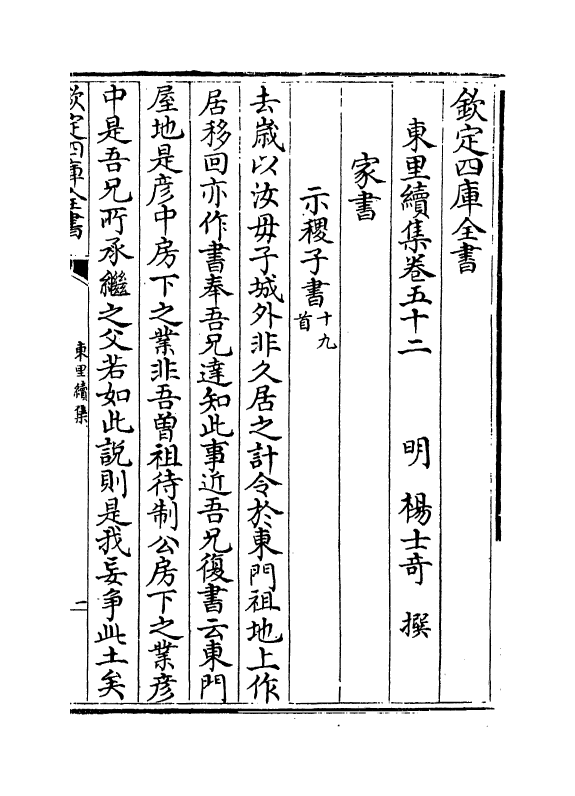 欽定四庫全書
東里續集卷五十二　　明　楊士奇　撰
家書
示稷子書十九首
去歲以汝毋子城外非久居之計令於東門祖地上作
居移回亦作書奉吾兄達知此事近吾兄復書云東門
屋地是彦中房下之業非吾曽祖待制公房下之業彦
中是吾兄所承繼之父若如此説則是我妄争此土矣
欽定四庫全書
東里續集
二